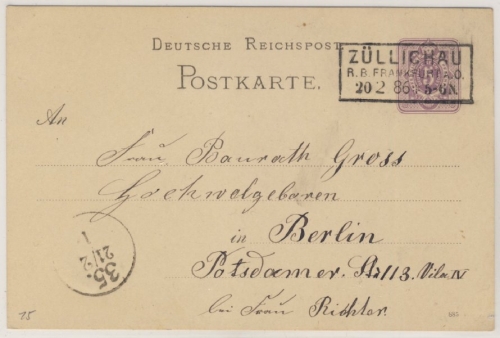 DEUTSCHE REICHSPOST
POSTKARTE.
ZÜLLICHAU
R.B. FRANKFURT a.O.
20 2 86 5-6N.
An
Frau Baurath Gross
Hochwolgeboren
in Berlin
Potsdamer. Str 113. Vila. IV
bei Frau Richter
35.
21/2
1
15